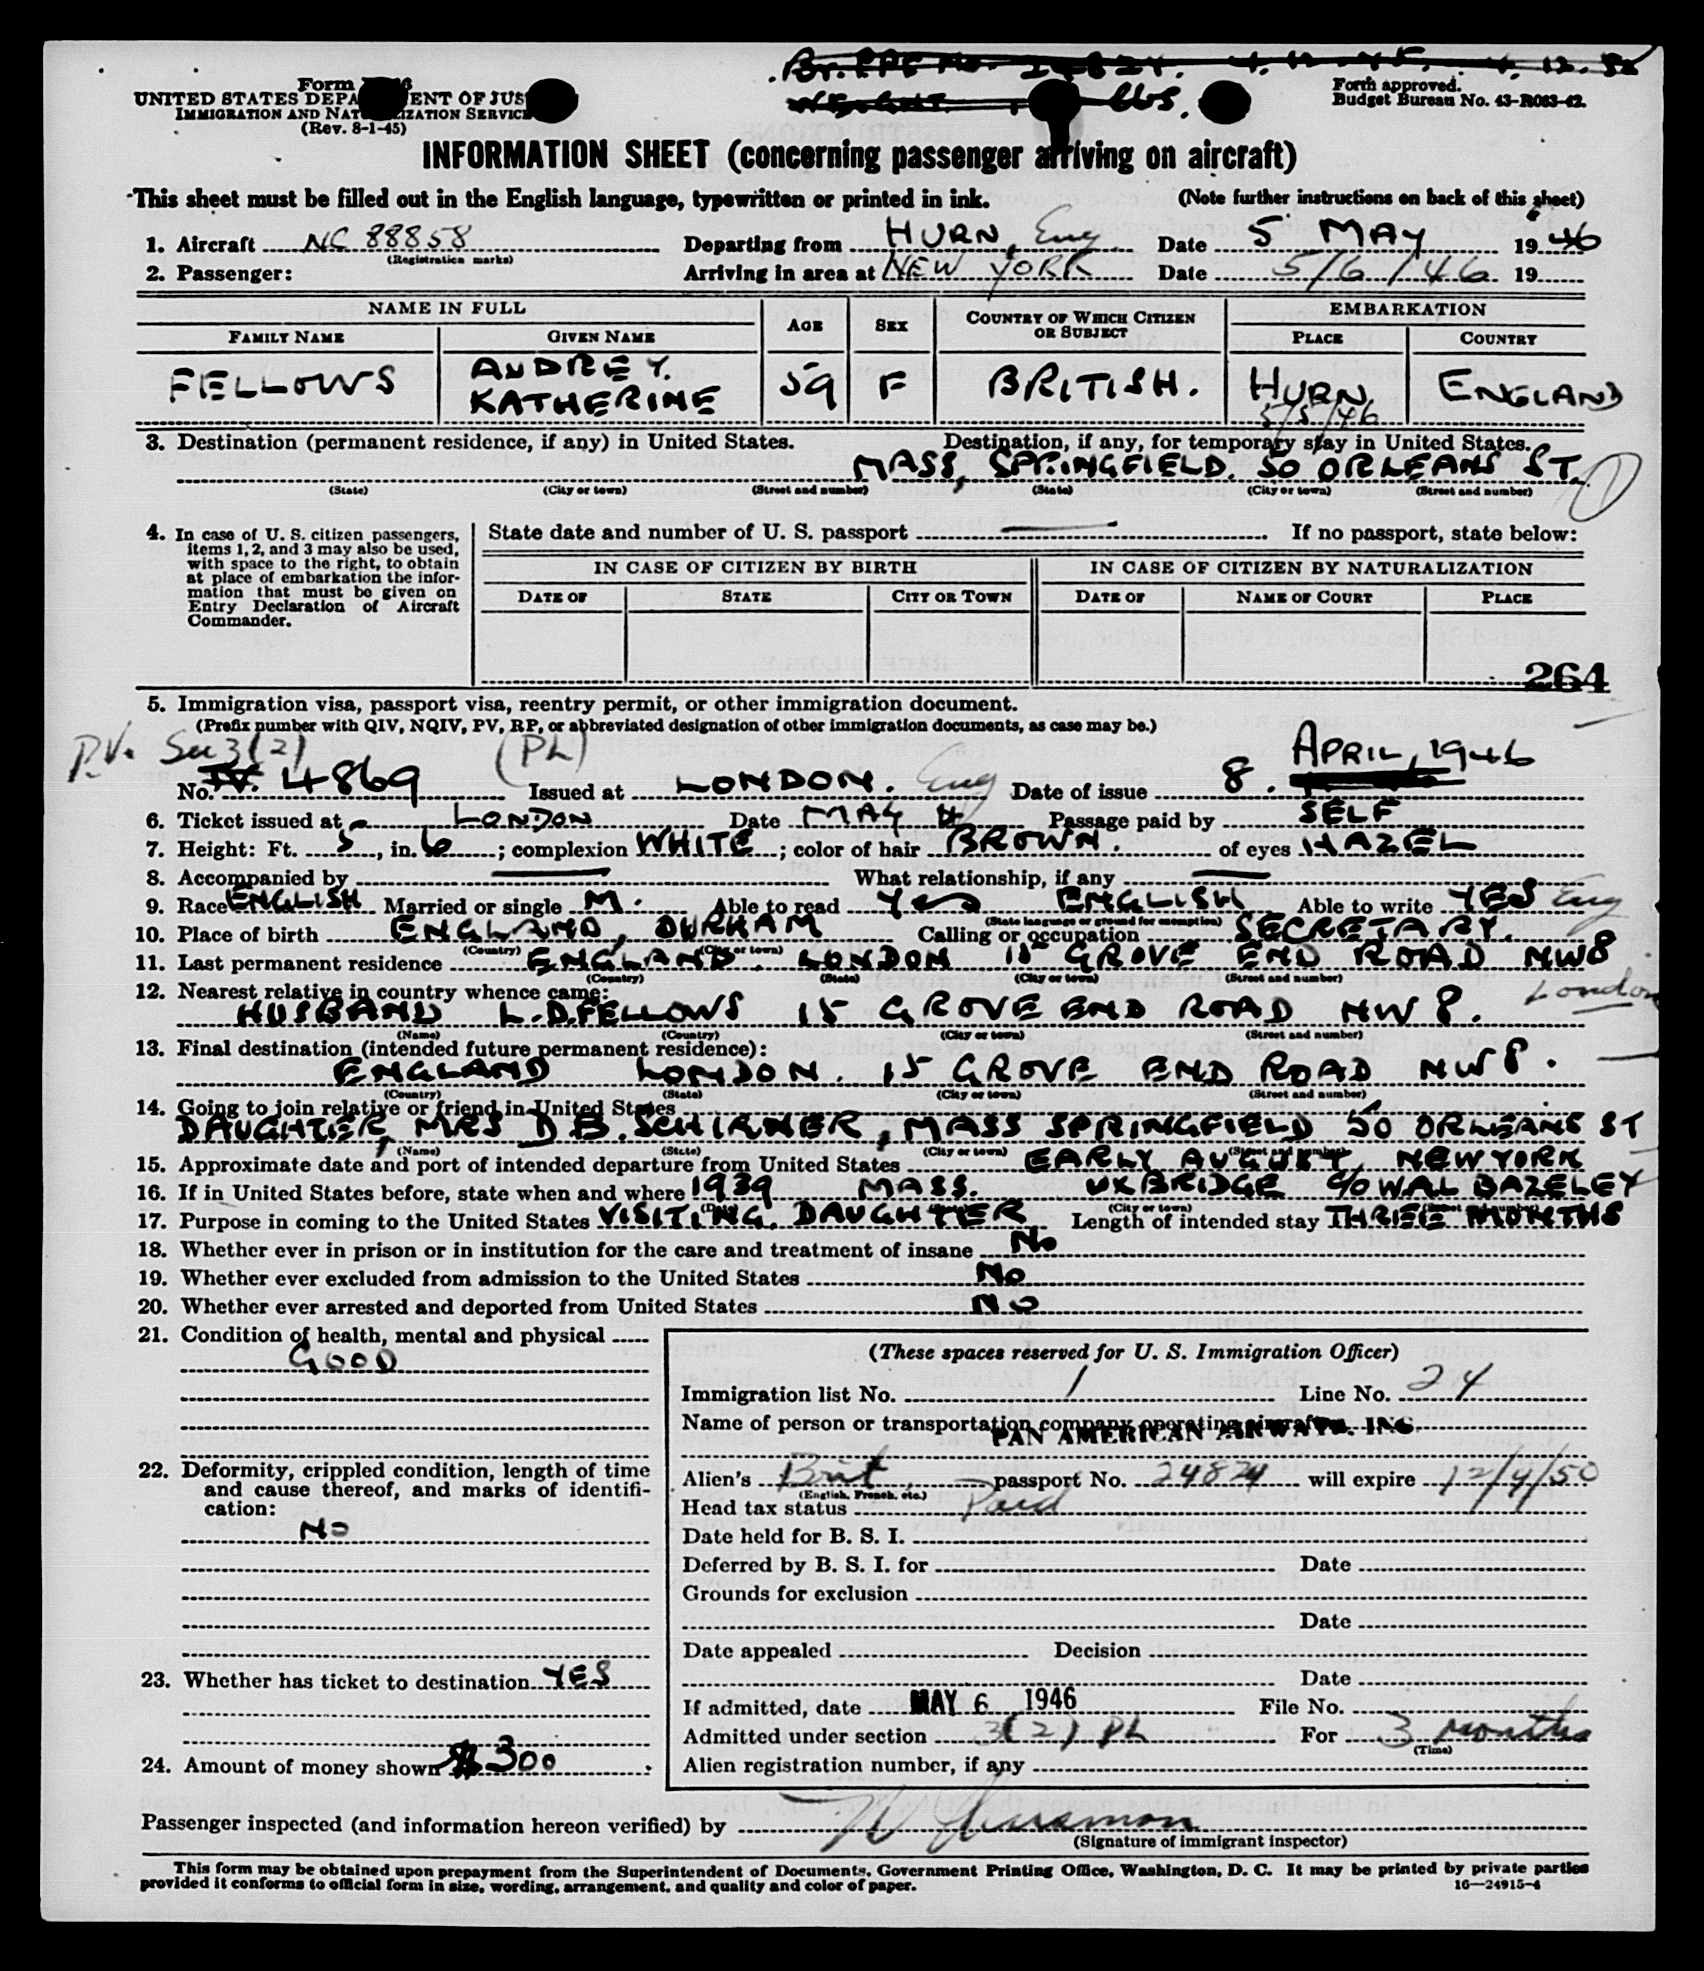 Form
UNITED STATES DEPA ENT OF JUS
IMMIGRATION AND NAT IZATION SERVICE
(Rev. 8-1-45)
Form approved.
Budget Bureau No. 43-R083-42.
INFORMATION SHEET (concerning passenger arriving on aircraft)
This sheet must be filled out in the English language, typewritten or printed in ink. (Note further instructions on back of this sheet)
1. Aircraft NC 88858 Departing from HURN, Eng. Date 5 MAY 1946
(Registration marks)
2. Passenger: Arriving in area at NEW YORK Date 5/6/46 19
NAME IN FULL AGE SEX COUNTRY OF WHICH CITIZEN OR SUBJECT EMBARKATION
FAMILY NAME GIVEN NAME PLACE COUNTRY
FELLOWS AUDREY. KATHERINE 59 F BRITISH. HURN. 5/5/46 ENGLAND
3. Destination (permanent residence, if any) in United States. Destination, if any, for temporary stay in United States.
MASS, SPRINGFIELD. 50 ORLEANS ST.
(State) (City or town) (Street and number) (State) (City or town) (Street and number)
4. In case of U. S. citizen passengers, items 1, 2, and 3 may also be used, with space to the right, to obtain at place of embarkation the information that must be given on Entry Declaration of Aircraft Commander.
State date and number of U. S. passport If no passport, state below:
IN CASE OF CITIZEN BY BIRTH IN CASE OF CITIZEN BY NATURALIZATION
DATE OF STATE CITY OR TOWN DATE OF NAME OF COURT PLACE
264
5. Immigration visa, passport visa, reentry permit, or other immigration document.
(Prefix number with QIV, NQIV, PV, RP, or abbreviated designation of other immigration documents, as case may be.)
P.V. Sec 3(2) (PL) APRIL, 1946
No. 4869 Issued at LONDON. Eng Date of issue 8.
6. Ticket issued at LONDON Date MAY 4 Passage paid by SELF
7. Height: Ft. 5, in. 6; complexion WHITE; color of hair BROWN. of eyes HAZEL
8. Accompanied by What relationship, if any
9. Race ENGLISH Married or single M. Able to read YES ENGLISH Able to write YES Eng
(State language or ground for exemption)
10. Place of birth ENGLAND, DURHAM Calling or occupation SECRETARY.
(Country) (City or town)
11. Last permanent residence ENGLAND. LONDON 15 GROVE END ROAD NW8
(Country) (State) (City or town) (Street and number)
12. Nearest relative in country whence came: London
HUSBAND L.D. FELLOWS 15 GROVE END ROAD NW 8.
(Name) (Country) (City or town) (Street and number)
13. Final destination (intended future permanent residence):
ENGLAND LONDON. 15 GROVE END ROAD NW 8.
(Country) (State) (City or town) (Street and number)
14. Going to join relative or friend in United States
DAUGHTER, MRS D B. SCHIRNER, MASS SPRINGFIELD 50 ORLEANS ST
(Name) (State) (City or town) (Street and number)
15. Approximate date and port of intended departure from United States EARLY AUGUST, NEW YORK
16. If in United States before, state when and where 1939 MASS. UXBRIDGE C/O WAL BAZELEY
(City or town)
17. Purpose in coming to the United States VISITING DAUGHTER Length of intended stay THREE MONTHS
18. Whether ever in prison or in institution for the care and treatment of insane No
19. Whether ever excluded from admission to the United States No
20. Whether ever arrested and deported from United States No
21. Condition of health, mental and physical
GOOD
(These spaces reserved for U. S. Immigration Officer)
Immigration list No. 1 Line No. 24
Name of person or transportation company operating aircraft
PAN AMERICAN AIRWAYS, INC.
22. Deformity, crippled condition, length of time and cause thereof, and marks of identification:
No
Alien's Brit passport No. 24824 will expire 12/4/50
(English, French, etc.)
Head tax status Paid
Date held for B. S. I.
Deferred by B. S. I. for Date
Grounds for exclusion
Date
Date appealed Decision
23. Whether has ticket to destination YES
Date
If admitted, date MAY 6 1946 File No.
Admitted under section 3(2) PL For 3 months
(Time)
24. Amount of money shown $300
Alien registration number, if any
Passenger inspected (and information hereon verified) by
(Signature of immigrant inspector)
This form may be obtained upon prepayment from the Superintendent of Documents, Government Printing Office, Washington, D. C. It may be printed by private parties
provided it conforms to official form in size, wording, arrangement, and quality and color of paper. 16—24915-4